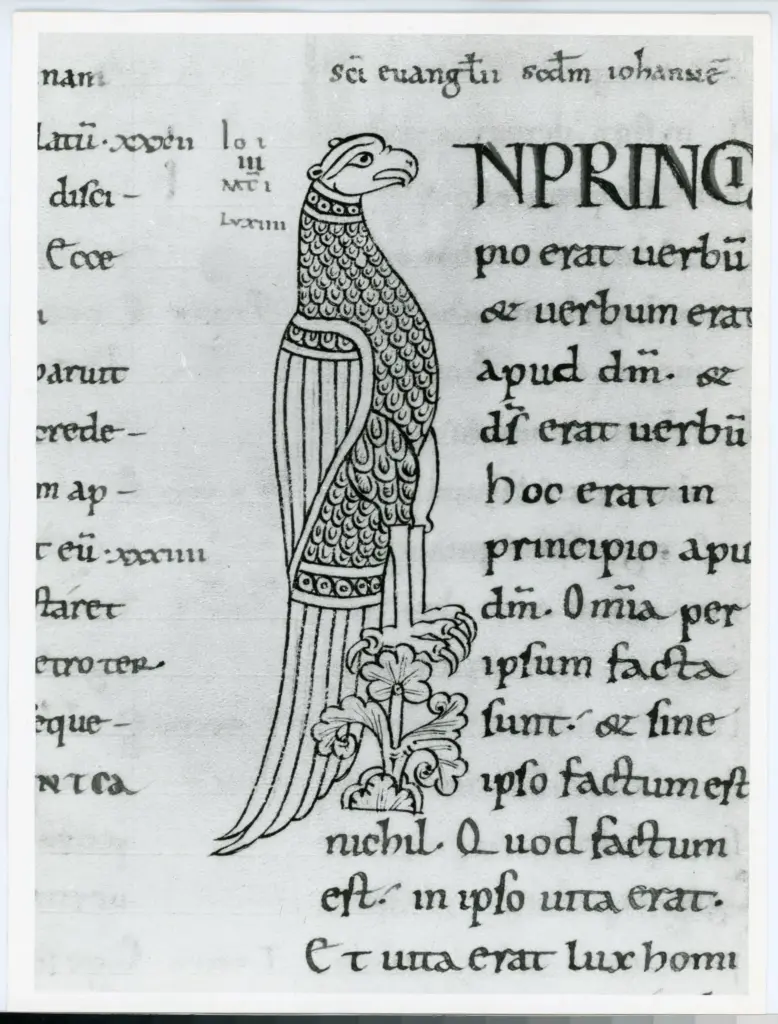 nam
latū·xxxiii
disci-
Ecce
paruit
crede-
m ap-
t eū·xxxiiii
staret
etro ter-
eque-
NTEA
sc̄i euangl̄ii scd̄m iohannē
Io i
III
MT̄ I
LVXIIII
NPRINCI
pio erat uerbū
& uerbum erat
apud dm̄· &
dš erat uerbū
hoc erat in
principio apu
dm̄· Om̄ia per
ipsum facta
sunt· & sine
ipso factum est
nichil· Quod factum
est· in ipso uita erat·
Et uita erat lux homi